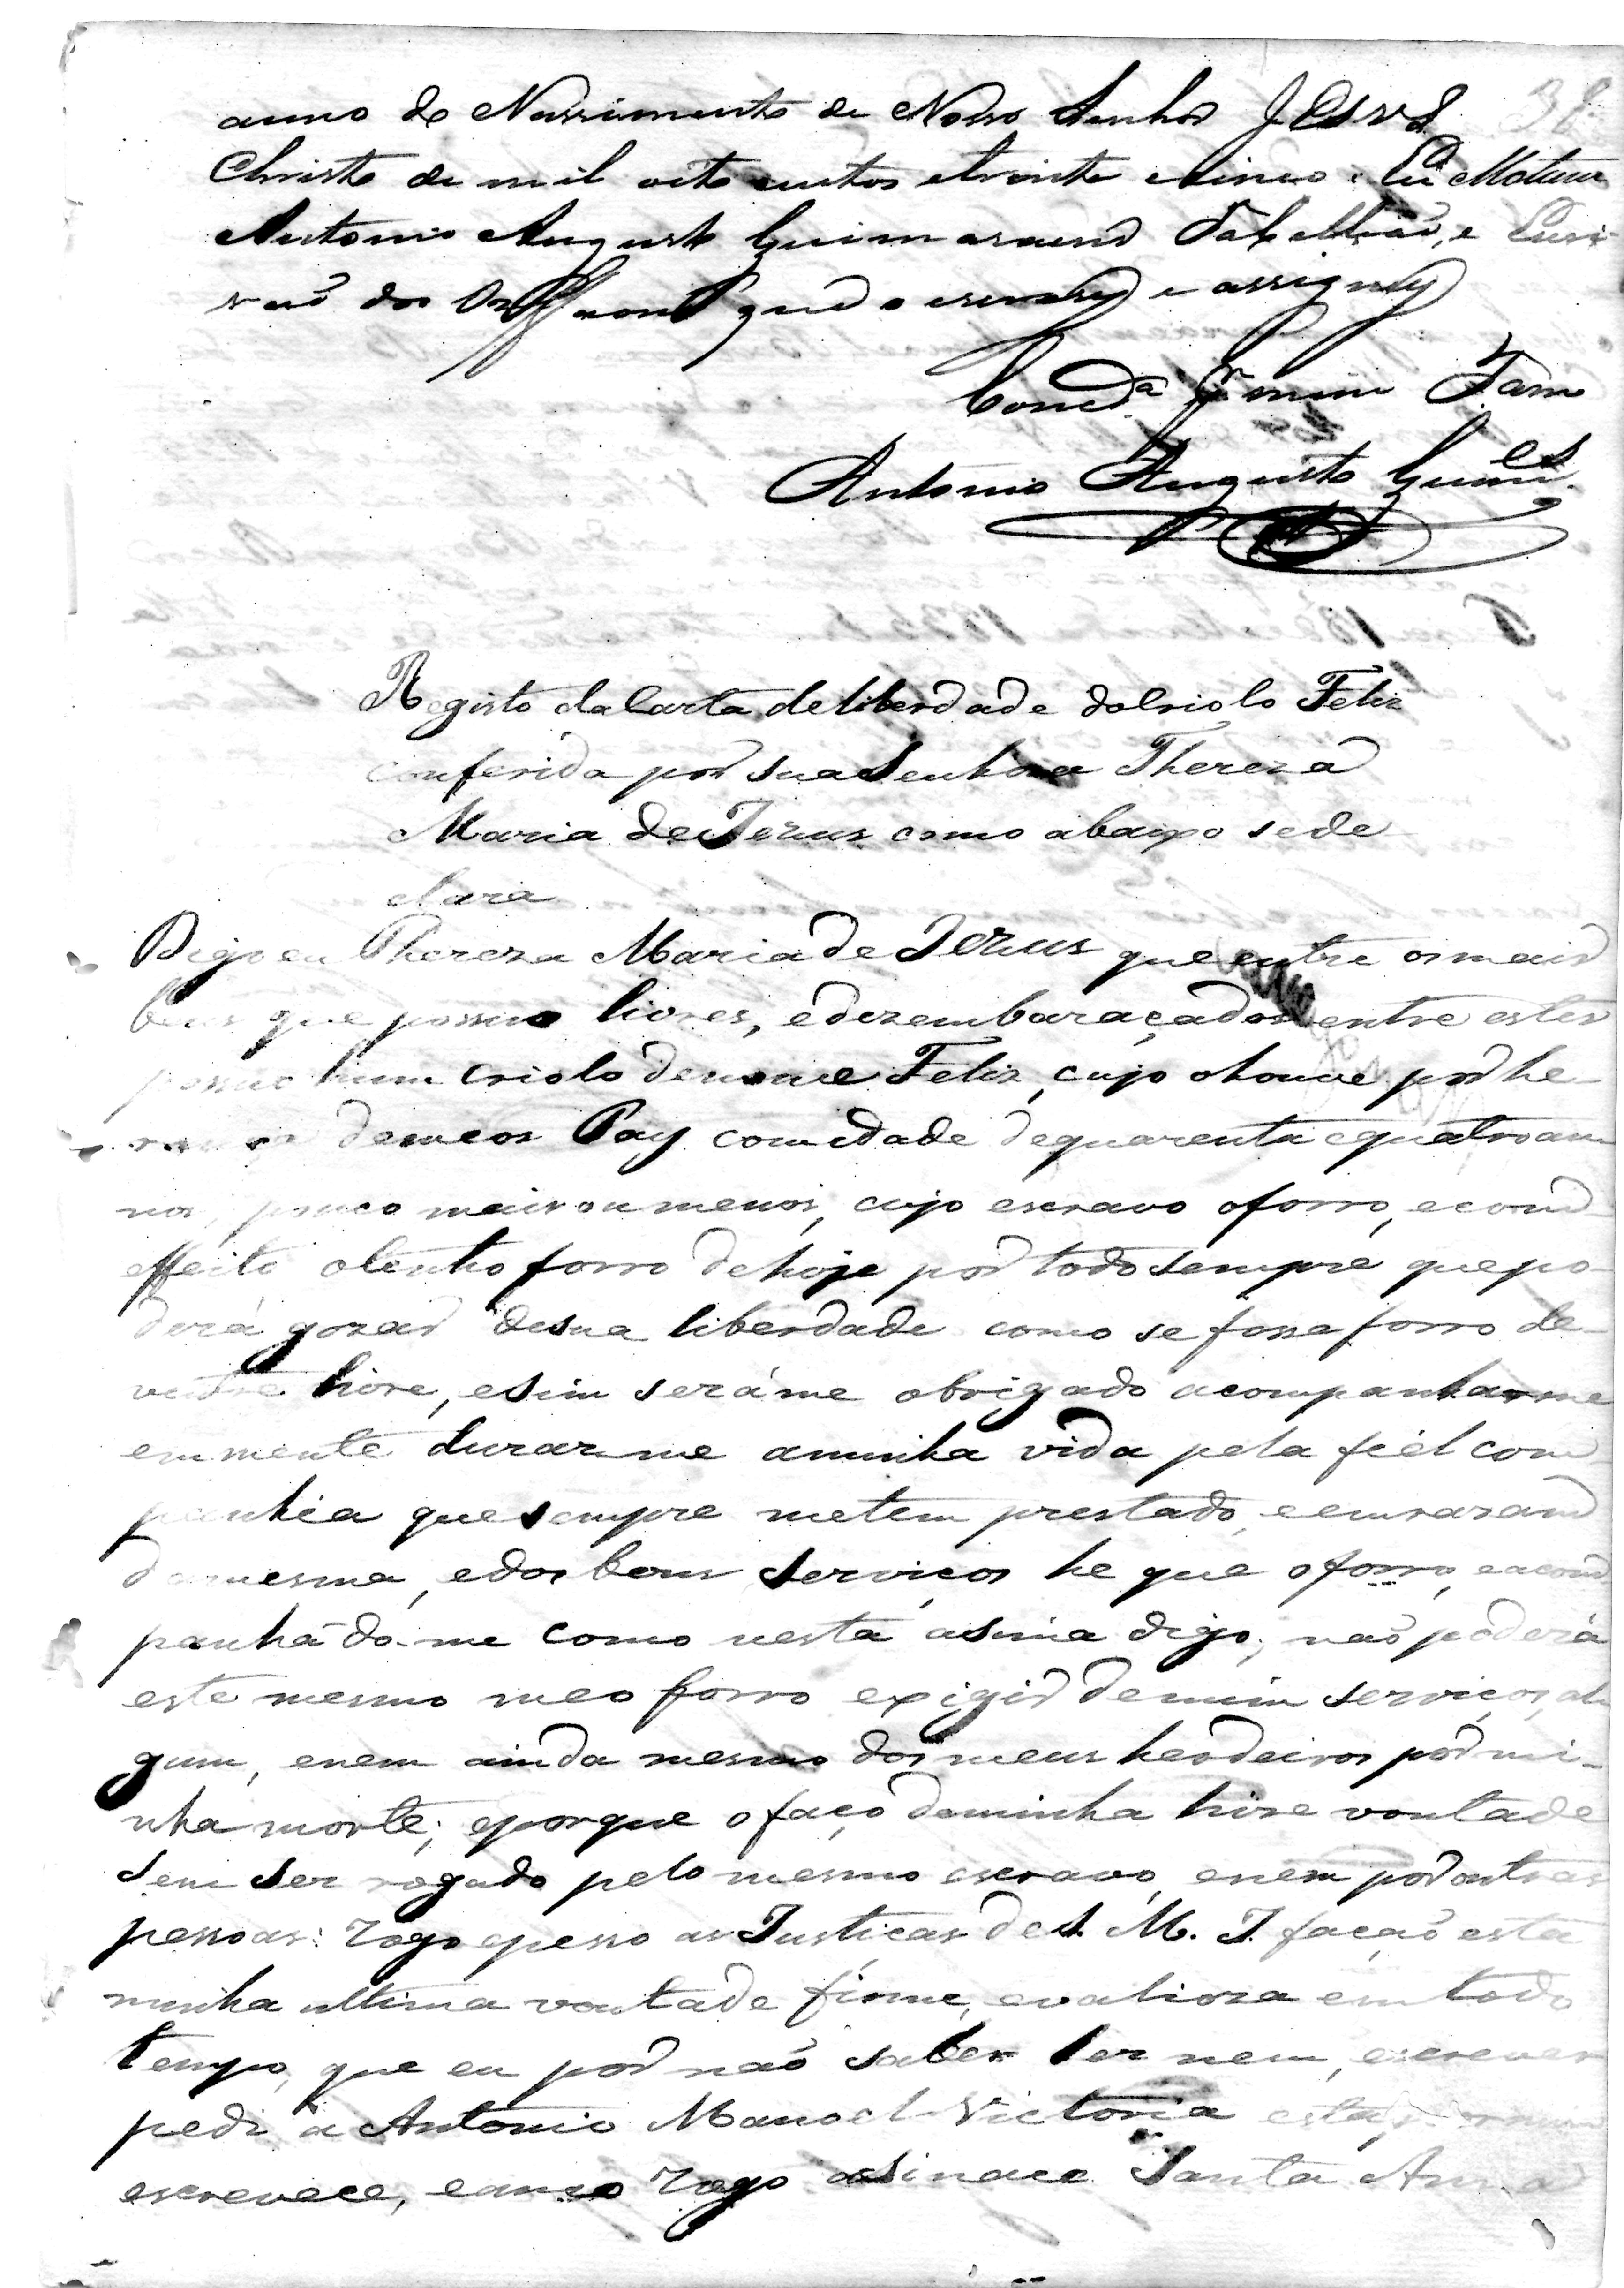 anno do Nassimento de Nosso Senhor JESVS
Christo de mil oito centos etrinta e sinco. Eu
Antonio Augusto Guimaraens Tabelliaõ, e Escri-
vaõ dos Orffaons que o escrevy e assigney
Antonio Augusto Guim.es
Registo da Carta de liberdade do Criolo Feliz
conferida por sua Senhora Thereza
Maria de Jezus como abaixo se de
clara
Digo eu Thereza Maria de Jezus que entre os mais
bens que possuo livres, e dezembaraçados entre estes
possuo hum criolo de nome Feliz, cujo o houve por he-
de meos Pay com idade de quarenta e quatro an
nos, pouco mais ou menos, cujo escravo o forro, e com
effeito o tenho forro de hoje por todo sempre que po-
derá gozar de sua liberdade como se fosse forro de-
ventre livre, e sim seráme obrigado acompanharme
emmente durarme a minha vida pela fiel com
panhia que sempre me tem prestado, e em razam
da mesma, e dos bons serviços he que o forro, e acom
panhãdo-me como nesta asima digo, naõ poderá
este mesmo meo forro exigir de mim serviços, al
gum, e nem ainda mesmo dos meus herdeiros por mi-
nha morte; e porque o faço de minha livre vontade
sem ser rogado pelo mesmo escravo, e nem por outras
pessoas: rogo e pesso as Justiças de S. M. I. façaõ esta
minha ultima vontade firme, e valioza em todo
tempo, que eu por naõ saber ler nem, escrever
pedi a Antonio Manoel Victoria esta
escrevece, e a meo rogo asinace Santa Anna